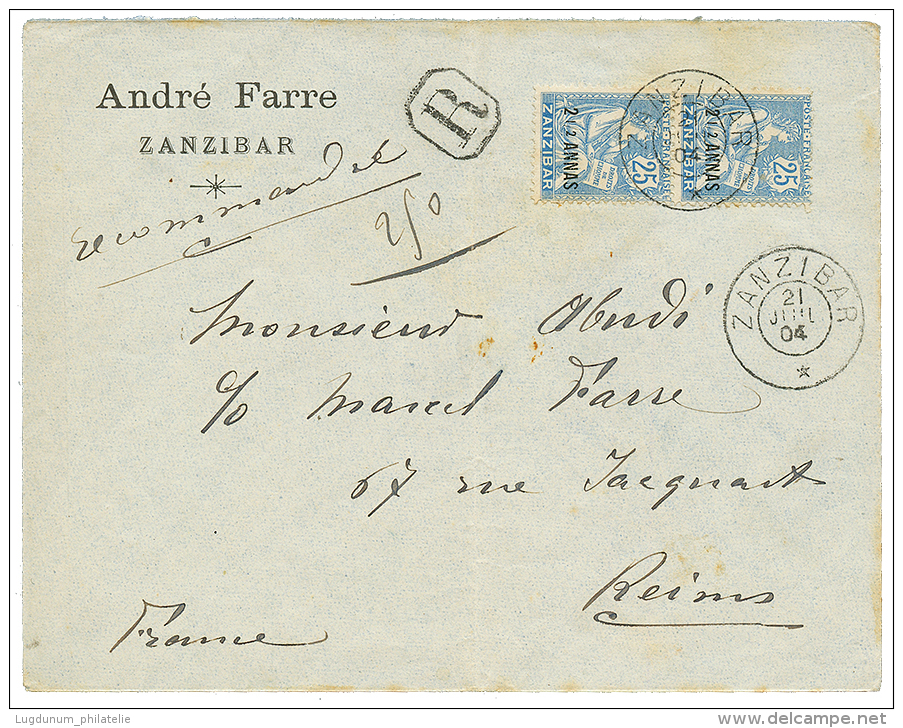 André Farre
ZANZIBAR
recommandé
250
R
2 1/2 ANNAS
ZANZIBAR
POSTE FRANÇAISE
25
2 1/2 ANNAS
ZANZIBAR
POSTE FRANÇAISE
25
ZANZIBAR
04
ZANZIBAR
21
JUIL
04
Monsieur Abudi
c/o Marcel Farre
67 rue Jacquart
Reims
France
Lugdunum_philatelie
www.delcampe.net